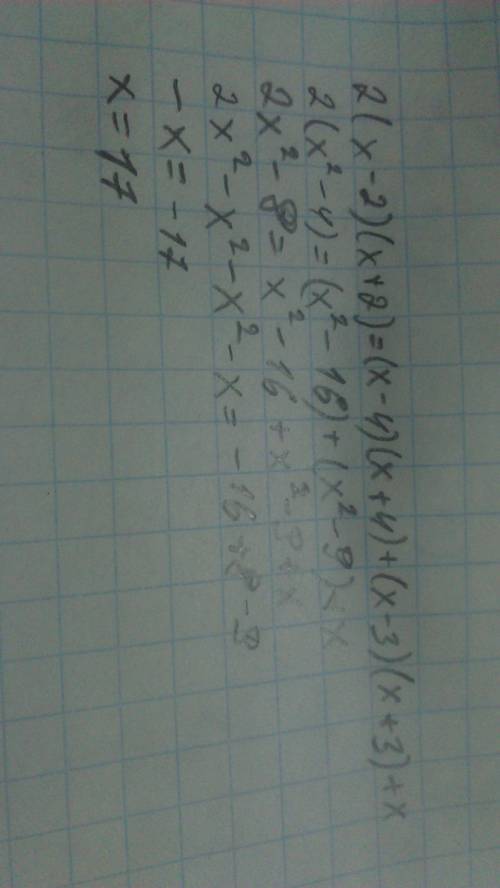 2(x-2)(x+2)=(x-4)(x+4)+(x-3)(x+3)+x
2(x²-4)=(x²-16)+(x²-9)+x
2x²-8=x²-16+x²-9+x
2x²-x²-x²-x=-16+8-9
-x=-17
x=17